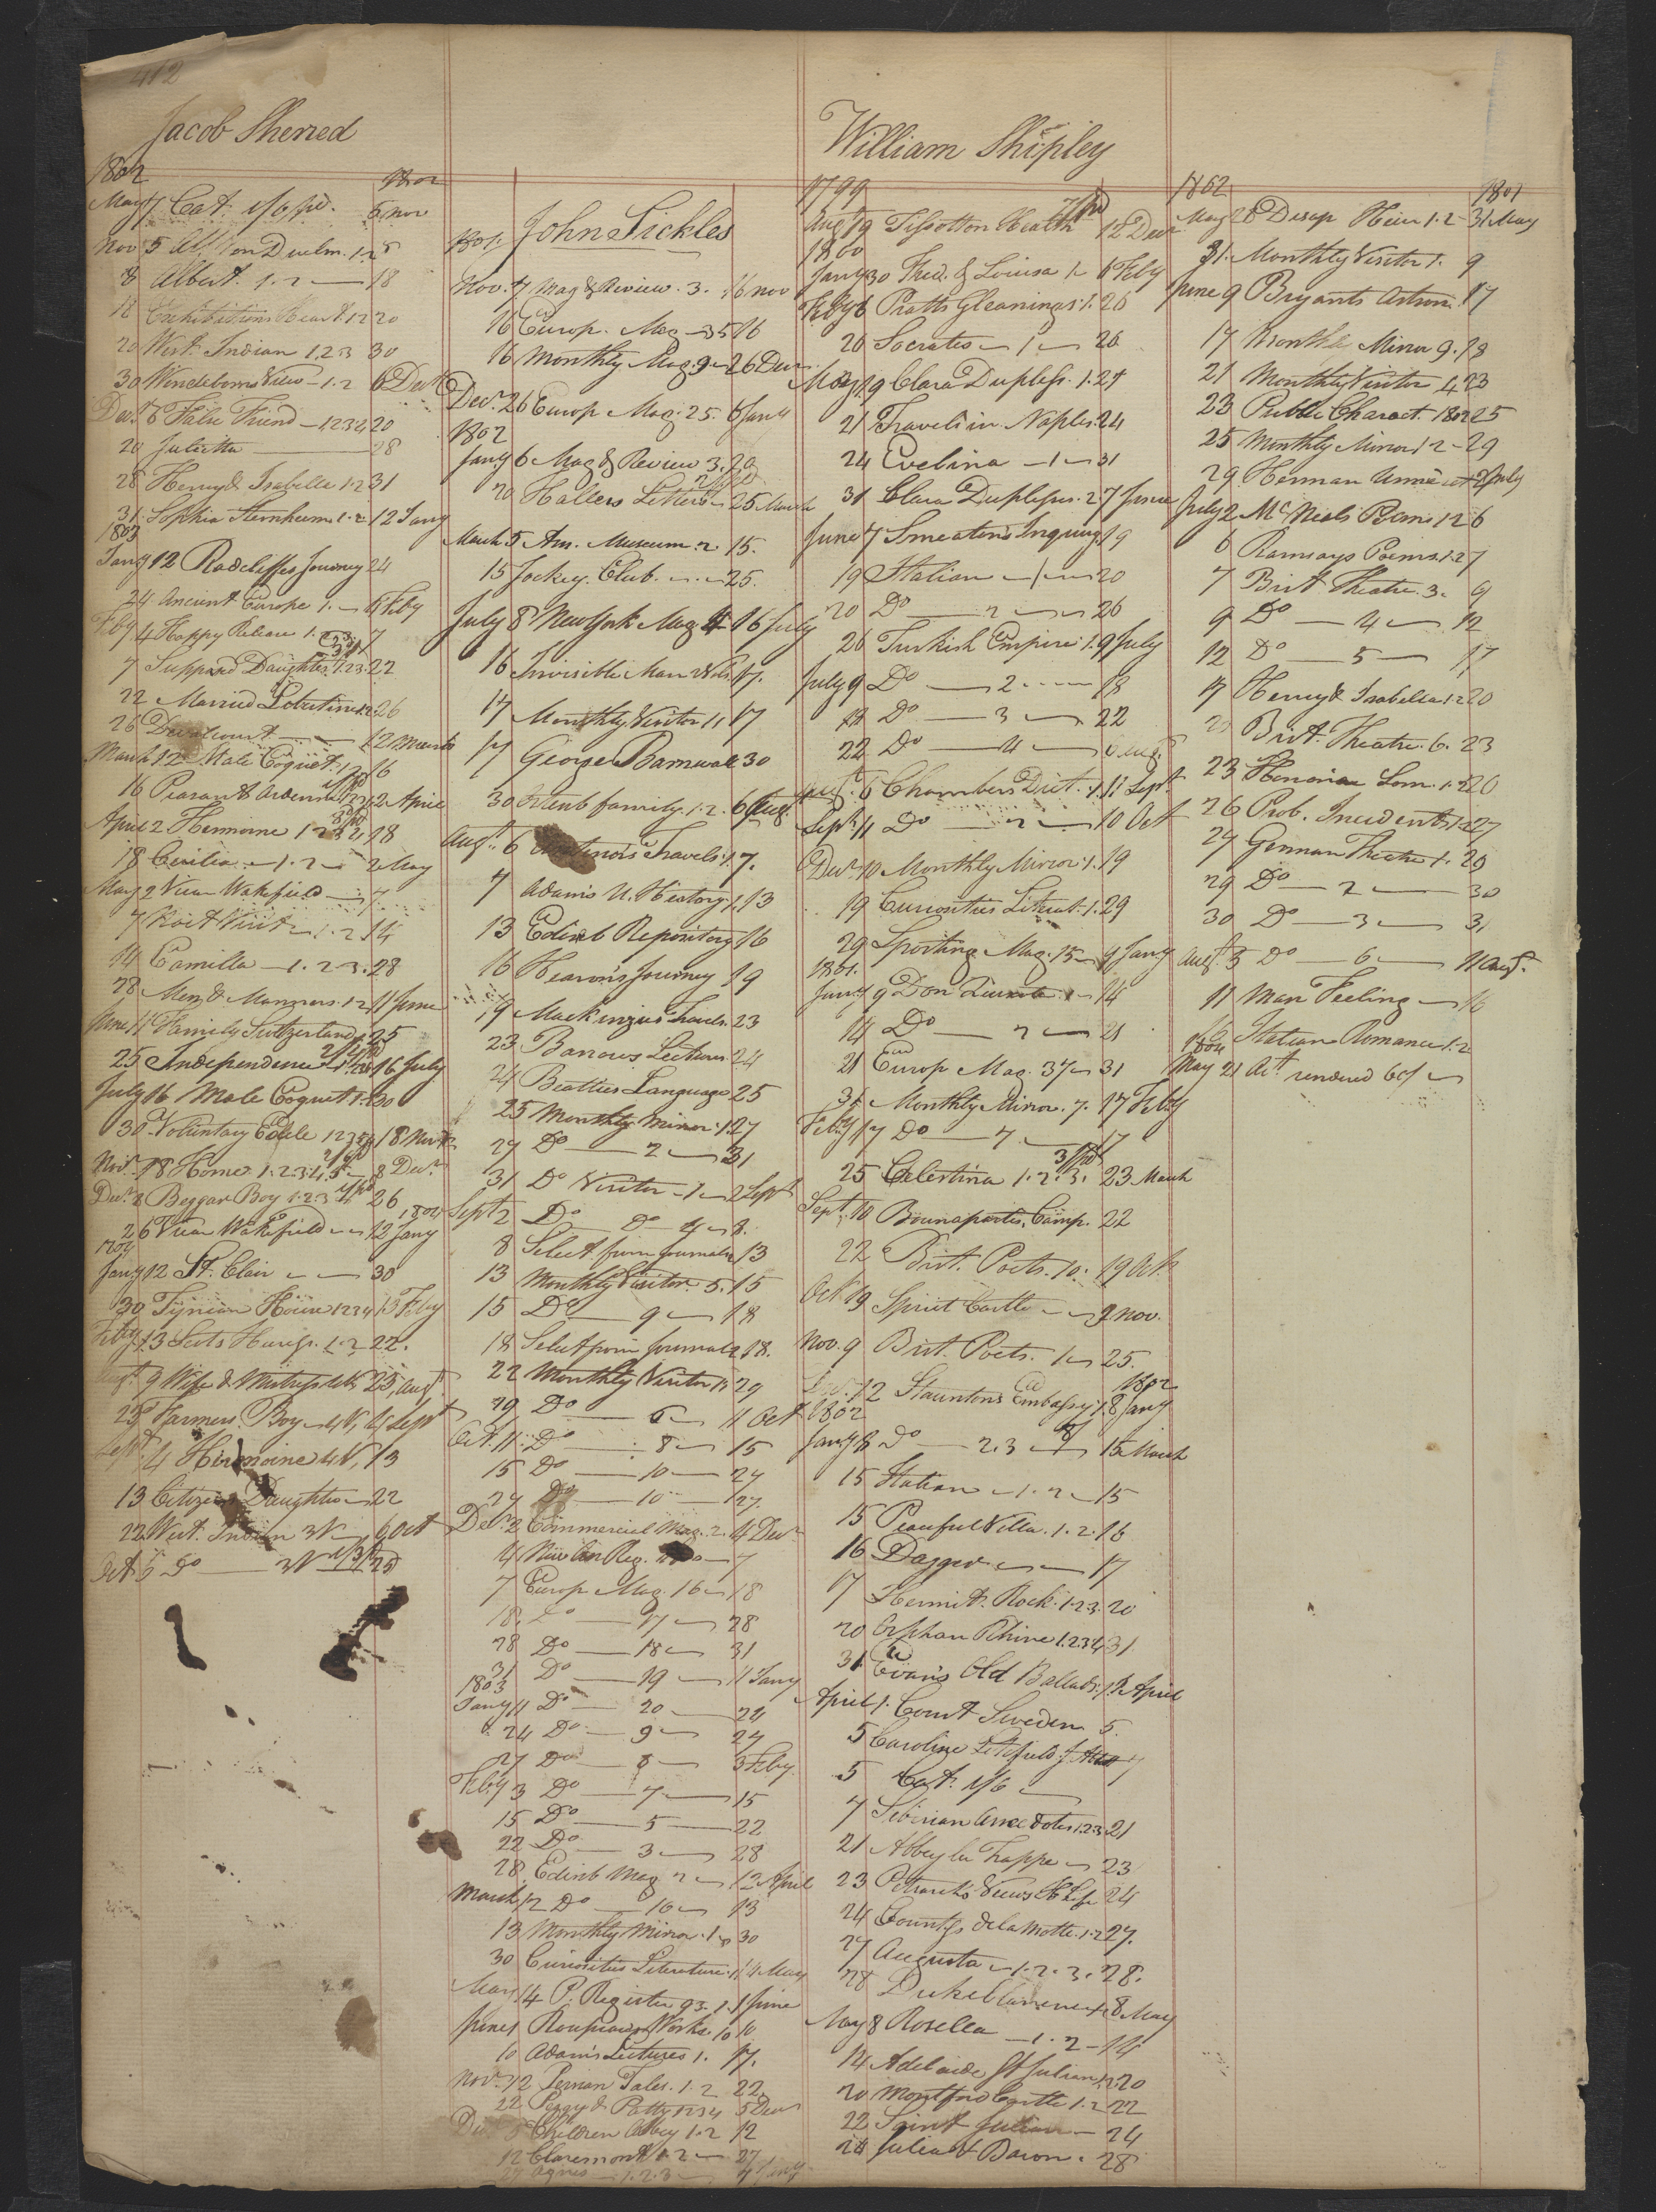 412
Jacob Sherred
1802 1802
May 7 Cat. 1/6 pd. 5 nov
Nov 5 on Duelm. 1.2 8
8 Albert. 1.2 — 18
18 Exhibitions Heart 1 2 20
20 West Indian 1.2.3 30
30 Wendeborns View — 1.2 6 Decr
Decr. 6 False Friend — 1234 20
20 Julietta — 28
28 Henry & Isabella 1.2 31
31 Sophia Sternheim 1.2 12 Jany
1803
Jany 12 Radcliffes Journey 24
24 Ancient Europe 1. — 4 Feby
Feby 4 Happy Release 1.2.3. 7
7 Supposed Daughter 1.2.3. 22
22 Married Libertine 1.2. 26
26 — 12 March
March 12 Male Coquet. 1.2 16
16 Peasant Ardenne 1234 2 April
April 2 Hermione 1 2 3 4 18
18 Cecilia — 1.2 — 2 May
May 2 Vicar Wakefield — 7
7 Visit — 1.2. 14
14 Camilla — 1.2.3. 28
28 Men & Manners. 1.2 11 June
June 11 Family Switzerland 25
25 Independence 16 July
July 16 Male Coquet 1. 30
30 Voluntary Exile 12345 18 Novr
Novr. 18 Home. 1.2.3.4.5 — 8 Decr.
Decr. 8 Beggar Boy 1.2.3 26
26 Vicar Wakefield — 12 Jany 1804
1804
Jany 12 St. Clair — 30
30 Tynian House 1234 13 Feby
Feby 13 Scots Heiress. 1.2 22.
Augt. 9 Wife & Mistress 4 Vs 25 Augt
25 Farmers Boy — 4 V, 4 Sept
Sept 4 Hermoine 4 V, 13
13 Citizens Daughter — 22
22 West Indian 3 V — 5 Oct
Oct 5 Do — 3 V 25
John Sickles
1801.
Nov. 7 Mag & Review. 3. 16 nov
16 Europ. Mag — 35 16
16 Monthly Mag. 9 — 26 Decr
Decr. 26 Europ Mag. 25. 6 Jany
1802
Jany 6 Mag & Review 3. 20
20 Hallers Letters — 25 March
March 5 Am. Museum. 2 15.
15 Jockey Club — 25.
July 8 New York Mag 4 16 July
16 Invisible Man 2 Vols 17.
17 Monthly Visitor 11 17
17 George Barnwall 30
30 family. 1.2. 6 Aug.
Augt. 6 Travels. 1. 7.
7 Adams U. History. 1. 13
13 Edinb Repository 16
16 Hearons Journey 19
19 Mackinzies Travels 23
23 Barrows Lectures 24
24 Beatties Language 25
25 Monthly Mirror. 1. 27
27 Do — 2 — 31
31 Do Visitor — 1 — 2 Sept
Sept 2 Do Do 4 — 8.
8 Select from Journals 13
13 Monthly Visitor. 5. 15
15 Do — 9 — 18
18 Select from Journals 2 18.
22 Monthly Visitor 29
29 Do — 6 — 11 Oct
Oct. 11 Do — 8 — 15
15 Do — 10 — 27
27 Do — 10 — 27.
Decr. 2 Commercial Mag. 2. 4 Decr
4 New An Reg. 7
7 Europ Mag. 16 — 18
18. Do — 17 — 28
28 Do — 18 — 31
31 Do — 19 — 11 Jany
1803
Jany 11 Do — 20 — 24
24 Do — 9 — 27
27 Do — 8 — 3 Feby
Feby 3 Do — 7 — 15
15 Do — 5 — 22
22 Do — 3 — 28
28 Edinb Mag 2 — 12 April
March 12 Do — 16 — 13
13 Monthly Mirror. 1 — 30
30 Curiosities Literature. 1 14 May
May 14 P. Register 93. 1. 1 June
June 1 Rousseaus Works. 10 10
10 Adams Lectures 1. 17.
Novr. 12 Persian Tales. 1.2 22
22 Peggy & Patty 1234 5 Decr
Decr 5 Children Abbey 1.2 12
12 Claremont 1.2 — 27
27 Agnes — 1.2.3 — 4 Jany
William Shipley
1799
Aug 19 Tissot on Health 12 Decr
1800
Jany 30 Fred. & Louisa 1 — 6 Feby
Feby 6 Pratts Gleanings. 1. 20
20 Socrates — 1 — 26
May 19 Clara Duplessis. 1. 21
21 Travels in Naples. 24
24 Evelina — 1 — 31
31 Clara Duplessis. 2 7 June
June 7 Smeaton's Inquiry 19
19 Italian — 1 — 20
20 Do — 2 — 26
26 Turkish Empire. 1. 9 July
July 9 Do — 2 — 18
18 Do — 3 — 22
22 Do — 4 — 6 Augt
Augt. 6 Chambers Dict. 1. 11 Sept.
Sept. 11 Do — 2 — 10 Oct
Decr. 10 Monthly Mirror. 1. 19
19 Curiosities Literat. 1. 29
29 Sporting Mag. 15 — 9 Jany
1801.
Jany 9 Don Quixote 1 — 14
14 Do — 2 — 21
21 Europ Mag. 37 — 31
31 Monthly Mirror. 7. 17 Feby
Feby 17 Do — 7 — 17
25 Celestina 1.2.3. 23 March
Sept. 10 Bounaparte's Camp. 22
22 Brit. Poets. 10. 19 Oct.
Oct 19 Spirit Castle — 9 nov.
Nov. 9 Brit. Poets. 1 — 25.
Decr. 12 Stauntons Embassy 1. 8 Jany 1802
1802
Jany 8 Do — 2.3 — 15 March
15 Italian — 1.2 — 15
15 Peaceful Villa. 1.2. 16
16 Dagger — 17
17 Hermit. Rock. 1.2.3. 20
20 Orphan Rhine 1.2.3.4 31
31 Evans Old Ballads. 1. 1 April
April 1. Court Sweden 5.
5 Caroline Litchfield. 7
5 Cat. 1/6 —
7 Siberian Anecdotes 1.2.3 21
21 Abbey la Trappe — 23
23 Petrarch's Views H Life 24
24 Countess de la Motte. 1.2 27.
27 Augusta — 1.2.3. 28.
28 Duke Clarence 8 May
May 8 Rosella — 1.2 — 14
14 Adelaide St Julian 1.2. 20
20 Montford Castle 1.2 22
22 Saint Julian — 24
24 Julia & Baron. 28
1802 1802
May 28 Disap Heir 1.2 — 31 May
31. Monthly Visitor 1. 9
June 9 Bryants Astron. 17
17 Month. Mirror 9. 18
21 Monthly Visitor 4 23
23 Public Charact. 1802 25
25 Monthly Mirror 12 — 29
29 Herman Unna 2 July
July 2 McNeals Poems 1.2 6
6 Ramsays Poems. 1.2 7
7 Brit. Theatre. 3. 9
9 Do — 4 — 12
12 Do — 5 — 17
17 Henry & Isabella 1.2 20
20 Brit. Theatre. 6. 23
23 Som. 1.2 26
26 Prob. Incidents 1.2 27
27 German Theatre 1. 29
29 Do — 2 — 30
30 Do — 3 — 31
Augt. 3 Do — 6 — 11 Augt.
11 Man Feeling — 16
16 Italian Romance 1.2
1804
May 21 Act. rendered 60/ —